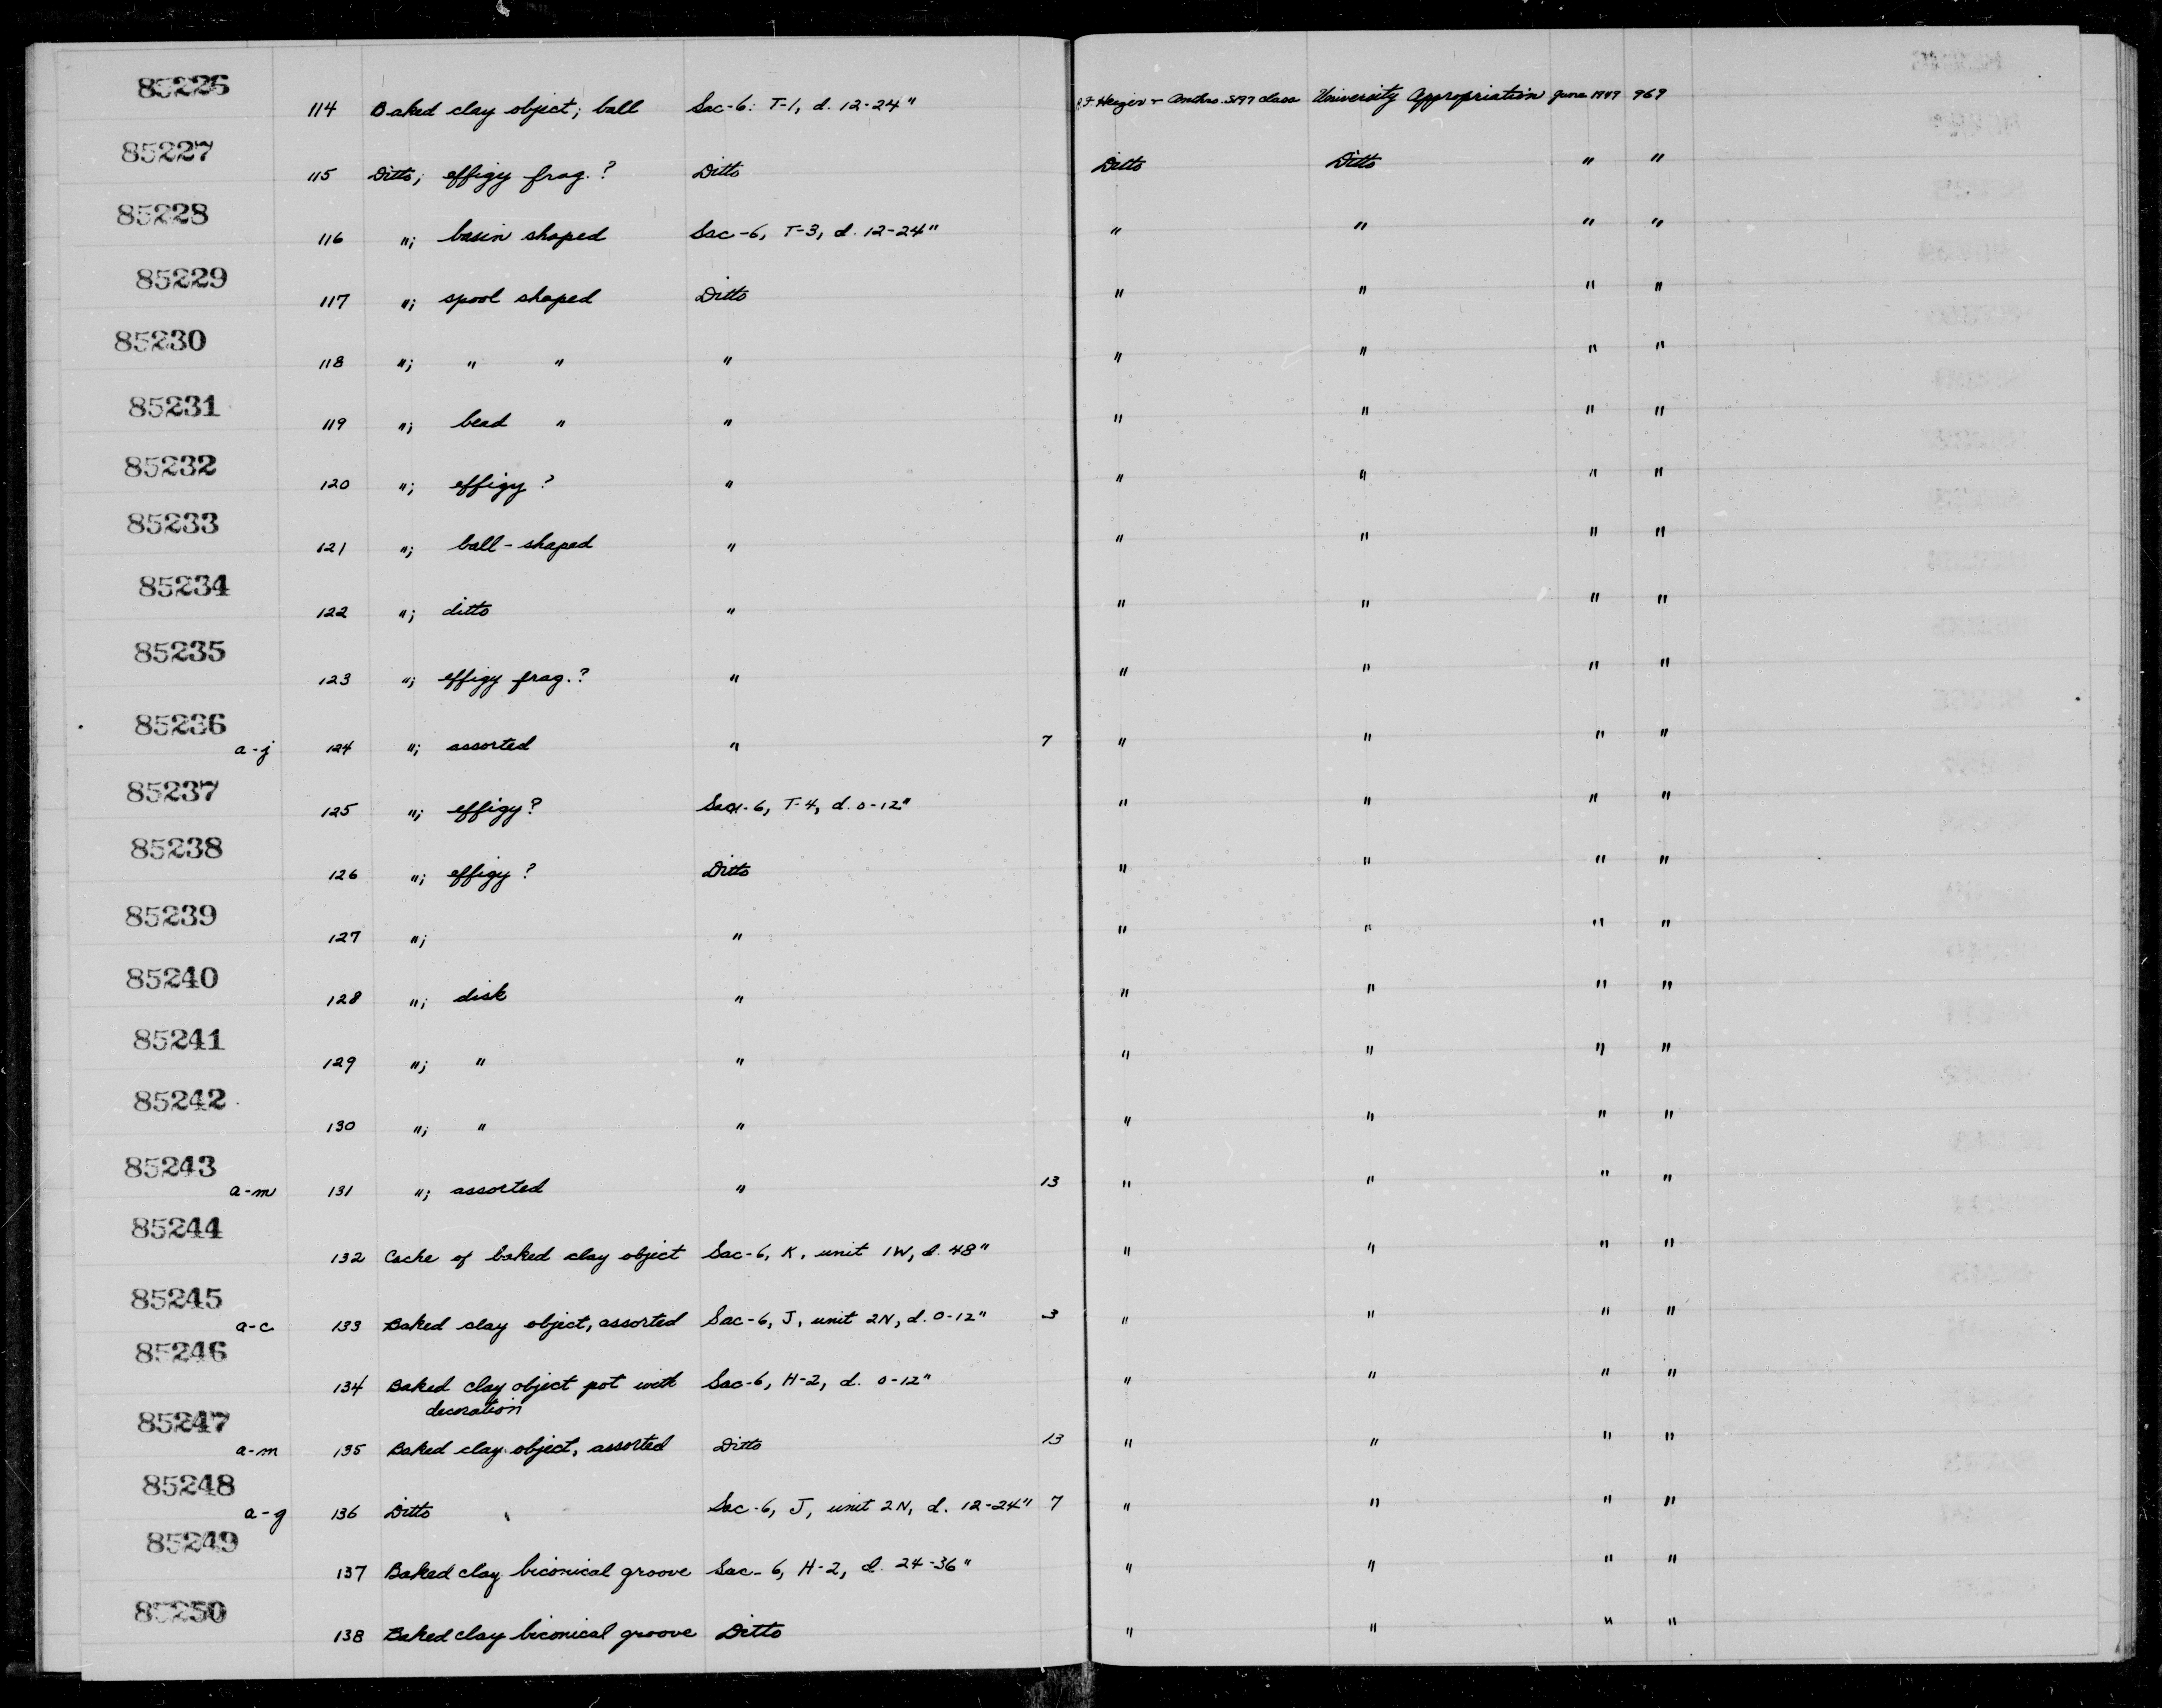 85226
114 Baked clay object; ball Sac-6: T-1, d. 12-24" Anthro. S197 class University Appropriation June 1949 969
85227
115 Ditto; effigy frag.? Ditto Ditto Ditto " "
85228
116 "; basin shaped Sac-6, T-3, d. 12-24" " " " "
85229
117 "; spool shaped Ditto " " " "
85230
118 "; " " " " " " "
85231
119 "; bead " " " " " "
85232
120 "; effigy? " " " " "
85233
121 "; ball-shaped " " " " "
85234
122 "; ditto " " " " "
85235
123 "; effigy frag.? " " " " "
85236
a-j 124 "; assorted " 7 " " " "
85237
125 "; effigy? Sac-6, T-4, d. 0-12" " " " "
85238
126 "; effigy? Ditto " " " "
85239
127 "; " " " " "
85240
128 "; disk " " " " "
85241
129 "; " " " " " "
85242
130 "; " " " " " "
85243
a-m 131 "; assorted " 13 " " " "
85244
132 Cache of baked clay object Sac-6, K, unit 1W, d. 48" " " " "
85245
a-c 133 Baked clay object, assorted Sac-6, J, unit 2N, d. 0-12" 3 " " " "
85246
134 Baked clay object pot with Sac-6, H-2, d. 0-12" " " " "
decoration
85247
a-m 135 Baked clay object, assorted Ditto 13 " " " "
85248
a-g 136 Ditto Sac-6, J, unit 2N, d. 12-24" 7 " " " "
85249
137 Baked clay biconical groove Sac-6, H-2, d. 24-36" " " " "
85250
138 Baked clay biconical groove Ditto " " " "